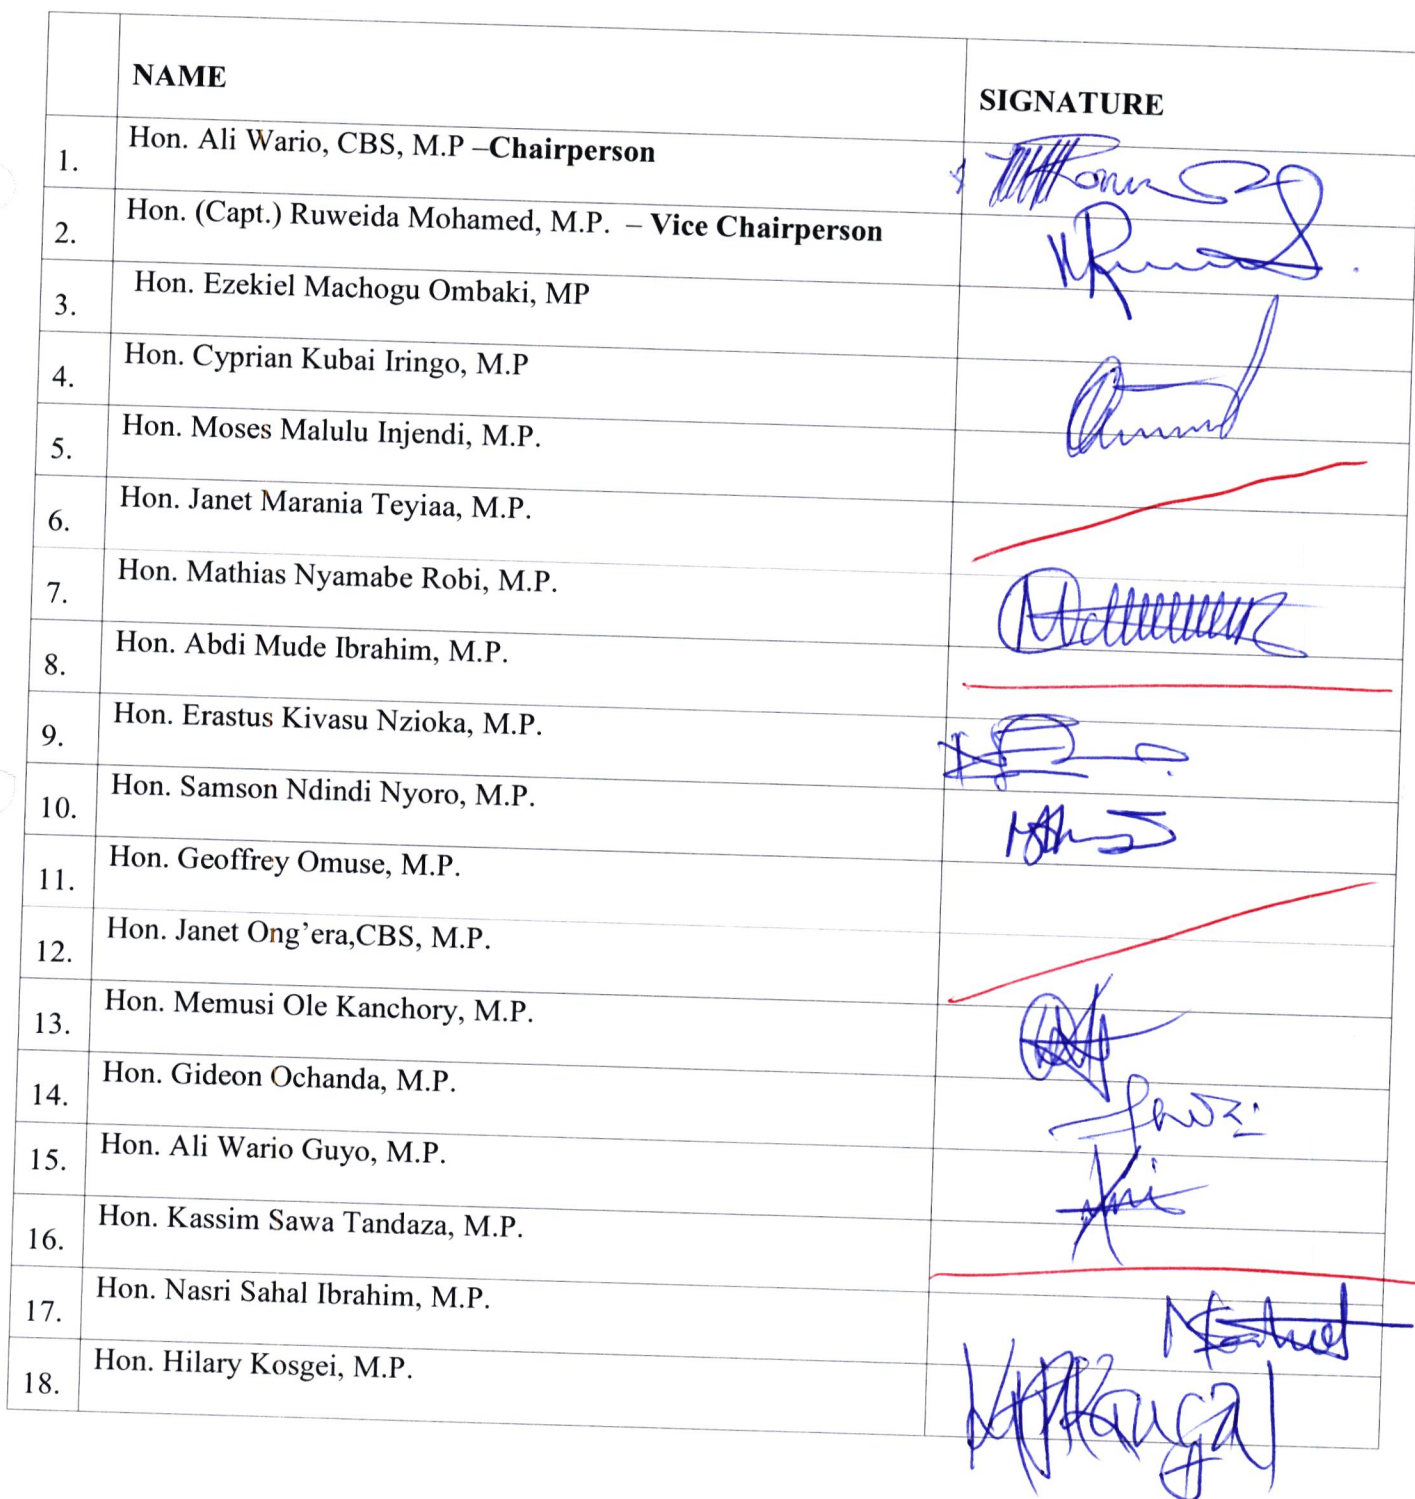 NAME SIGNATURE
1. Hon. Ali Wario, CBS, M.P –Chairperson
2. Hon. (Capt.) Ruweida Mohamed, M.P. – Vice Chairperson
3. Hon. Ezekiel Machogu Ombaki, MP
4. Hon. Cyprian Kubai Iringo, M.P
5. Hon. Moses Malulu Injendi, M.P.
6. Hon. Janet Marania Teyiaa, M.P.
7. Hon. Mathias Nyamabe Robi, M.P.
8. Hon. Abdi Mude Ibrahim, M.P.
9. Hon. Erastus Kivasu Nzioka, M.P.
10. Hon. Samson Ndindi Nyoro, M.P.
11. Hon. Geoffrey Omuse, M.P.
12. Hon. Janet Ong’era,CBS, M.P.
13. Hon. Memusi Ole Kanchory, M.P.
14. Hon. Gideon Ochanda, M.P.
15. Hon. Ali Wario Guyo, M.P.
16. Hon. Kassim Sawa Tandaza, M.P.
17. Hon. Nasri Sahal Ibrahim, M.P.
18. Hon. Hilary Kosgei, M.P.